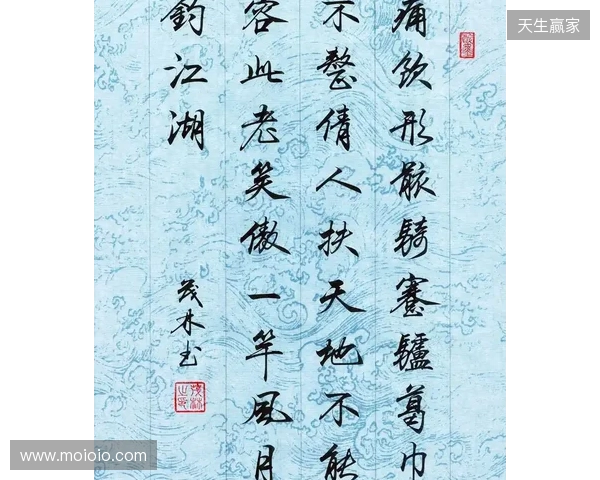 天生赢家
痛飲形骸騎蹇驢葛巾
不整倩人扶天地不能
容此老笑傲一竿風月
釣江湖
茂林书
www.moioio.com